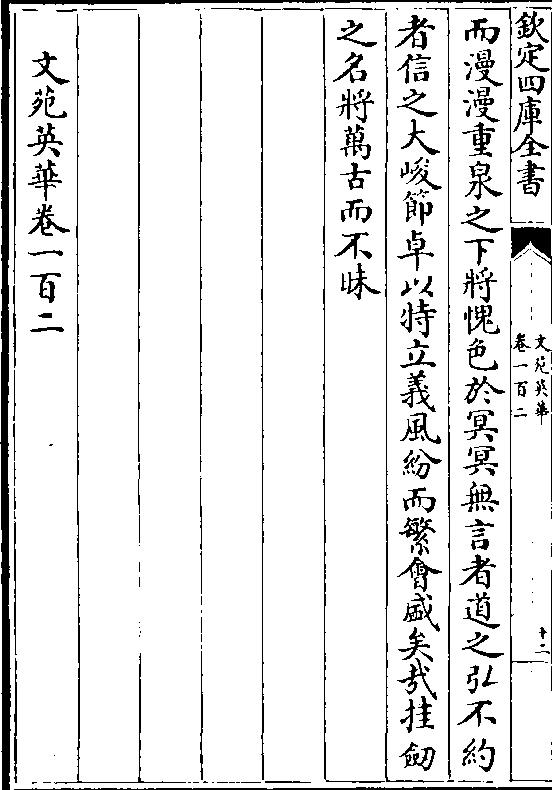 欽定四庫全書
文苑英華
卷一百二
十二
而漫漫重泉之下將愧色於冥冥無言者道之弘不約
者信之大峻節卓以特立義風紛而繁會盛矣哉挂劒
之名將萬古而不昧
文苑英華卷一百二